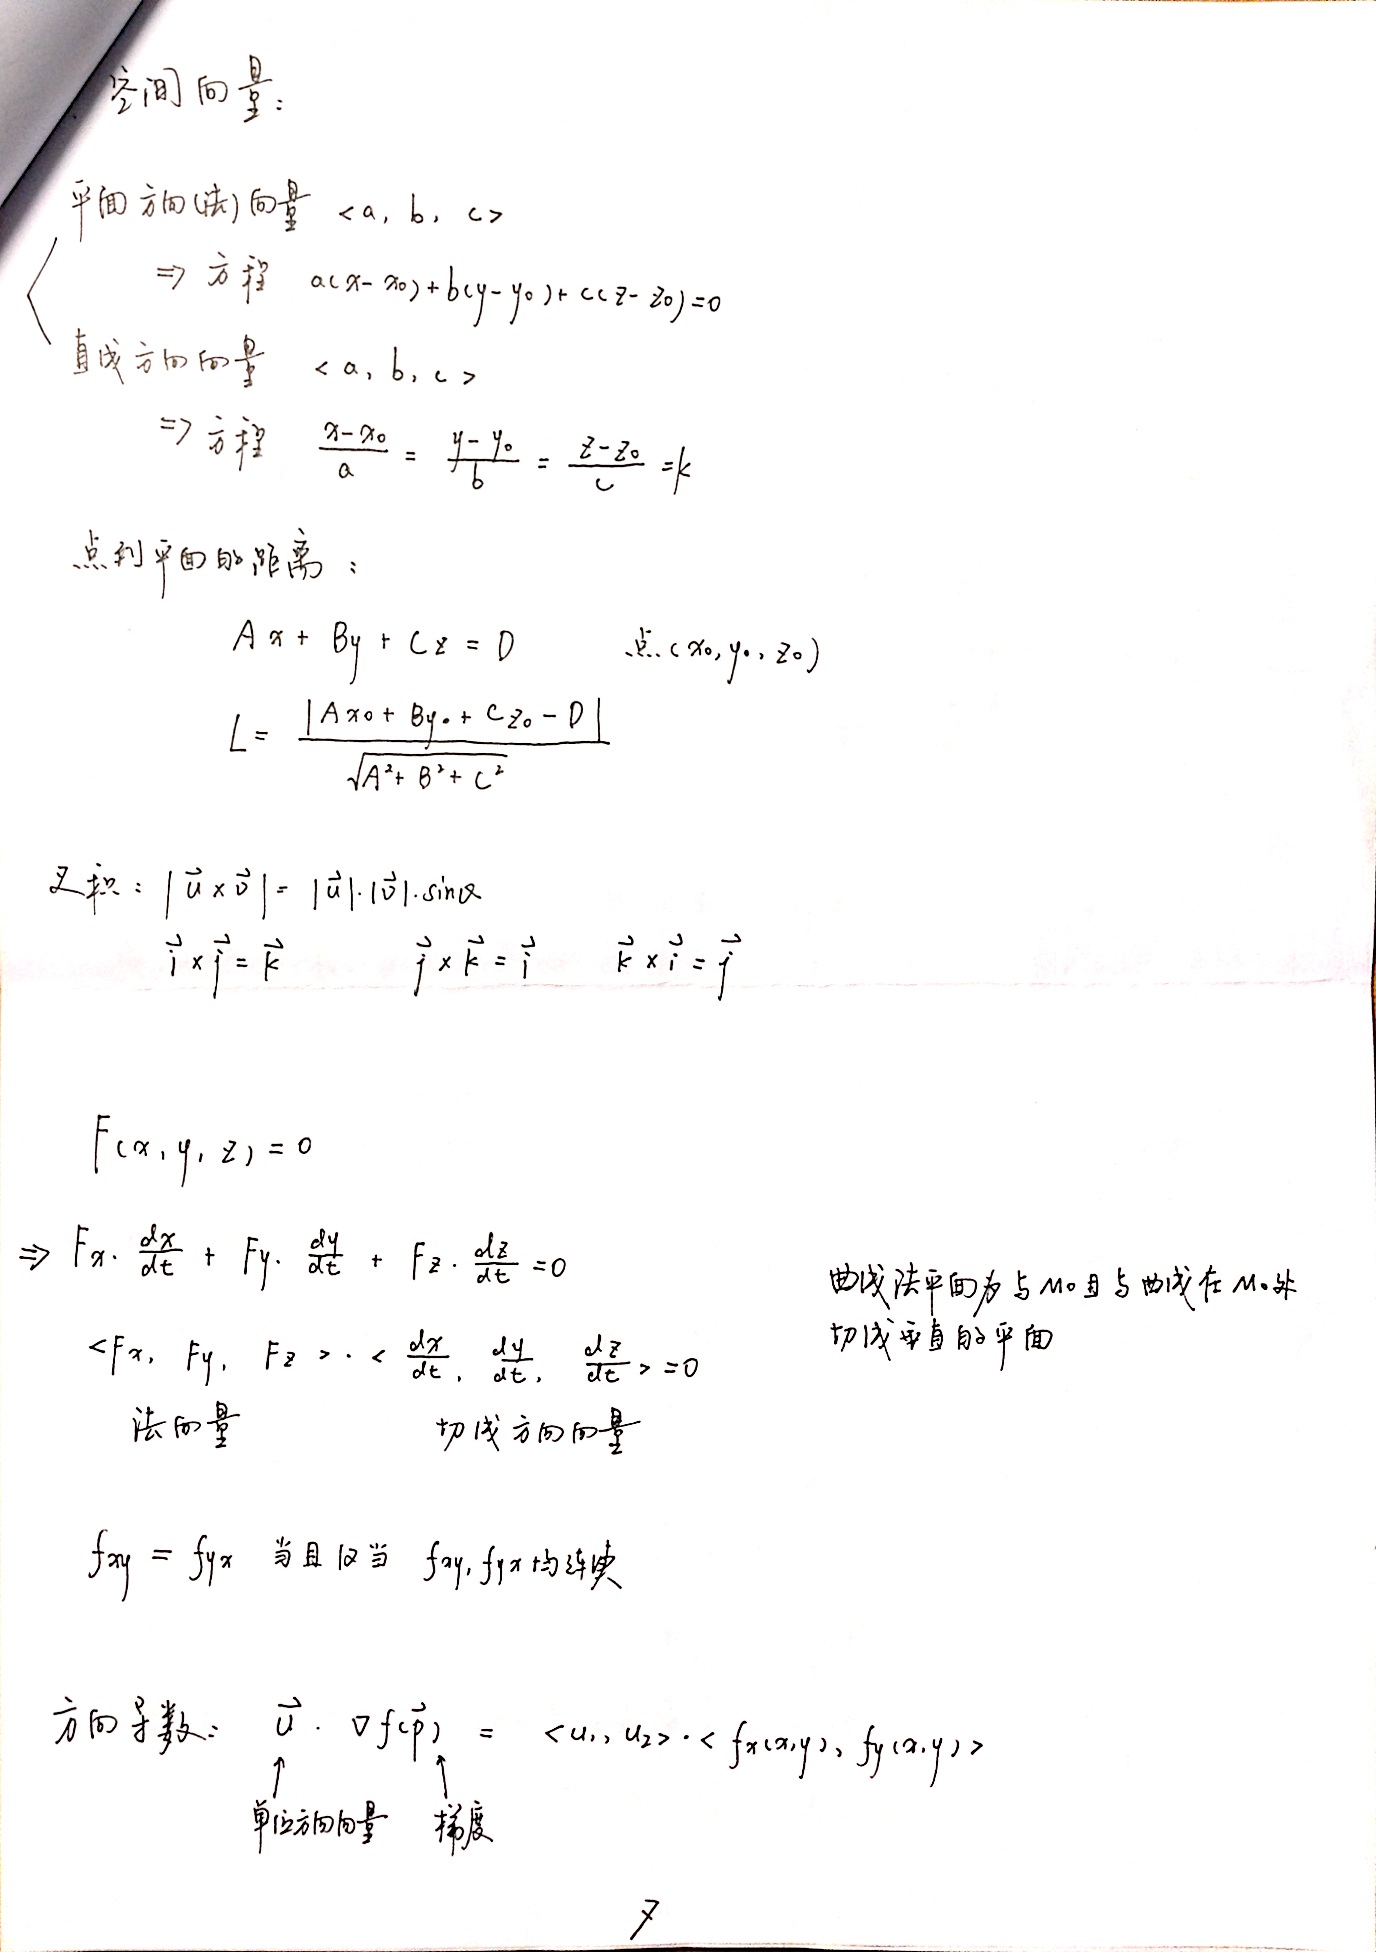 空间向量：
平面方向(法)向量 <a, b, c>
⇒ 方程 a(x-x₀)+b(y-y₀)+c(z-z₀)=0
直线方向向量 <a, b, c>
⇒ 方程 (x-x₀)/a = (y-y₀)/b = (z-z₀)/c = k
点到平面的距离：
Ax + By + Cz = D 点(x₀, y₀, z₀)
L = |Ax₀ + By₀ + Cz₀ - D| / √(A²+B²+C²)
叉积：|u⃗×v⃗| = |u⃗|·|v⃗|·sinα
i⃗×j⃗=k⃗ j⃗×k⃗=i⃗ k⃗×i⃗=j⃗
F(x, y, z) = 0
⇒ Fx·dx/dt + Fy·dy/dt + Fz·dz/dt = 0
<Fx, Fy, Fz>·<dx/dt, dy/dt, dz/dt> = 0
法向量 切线方向向量
曲线法平面为与M₀且与曲线在M₀处
切线垂直的平面
fxy = fyx 当且仅当 fxy, fyx均连续
方向导数： u⃗ · ∇f(p⃗) = <u₁, u₂>·<fx(x,y), fy(x,y)>
↑ ↑
单位方向向量 梯度
7